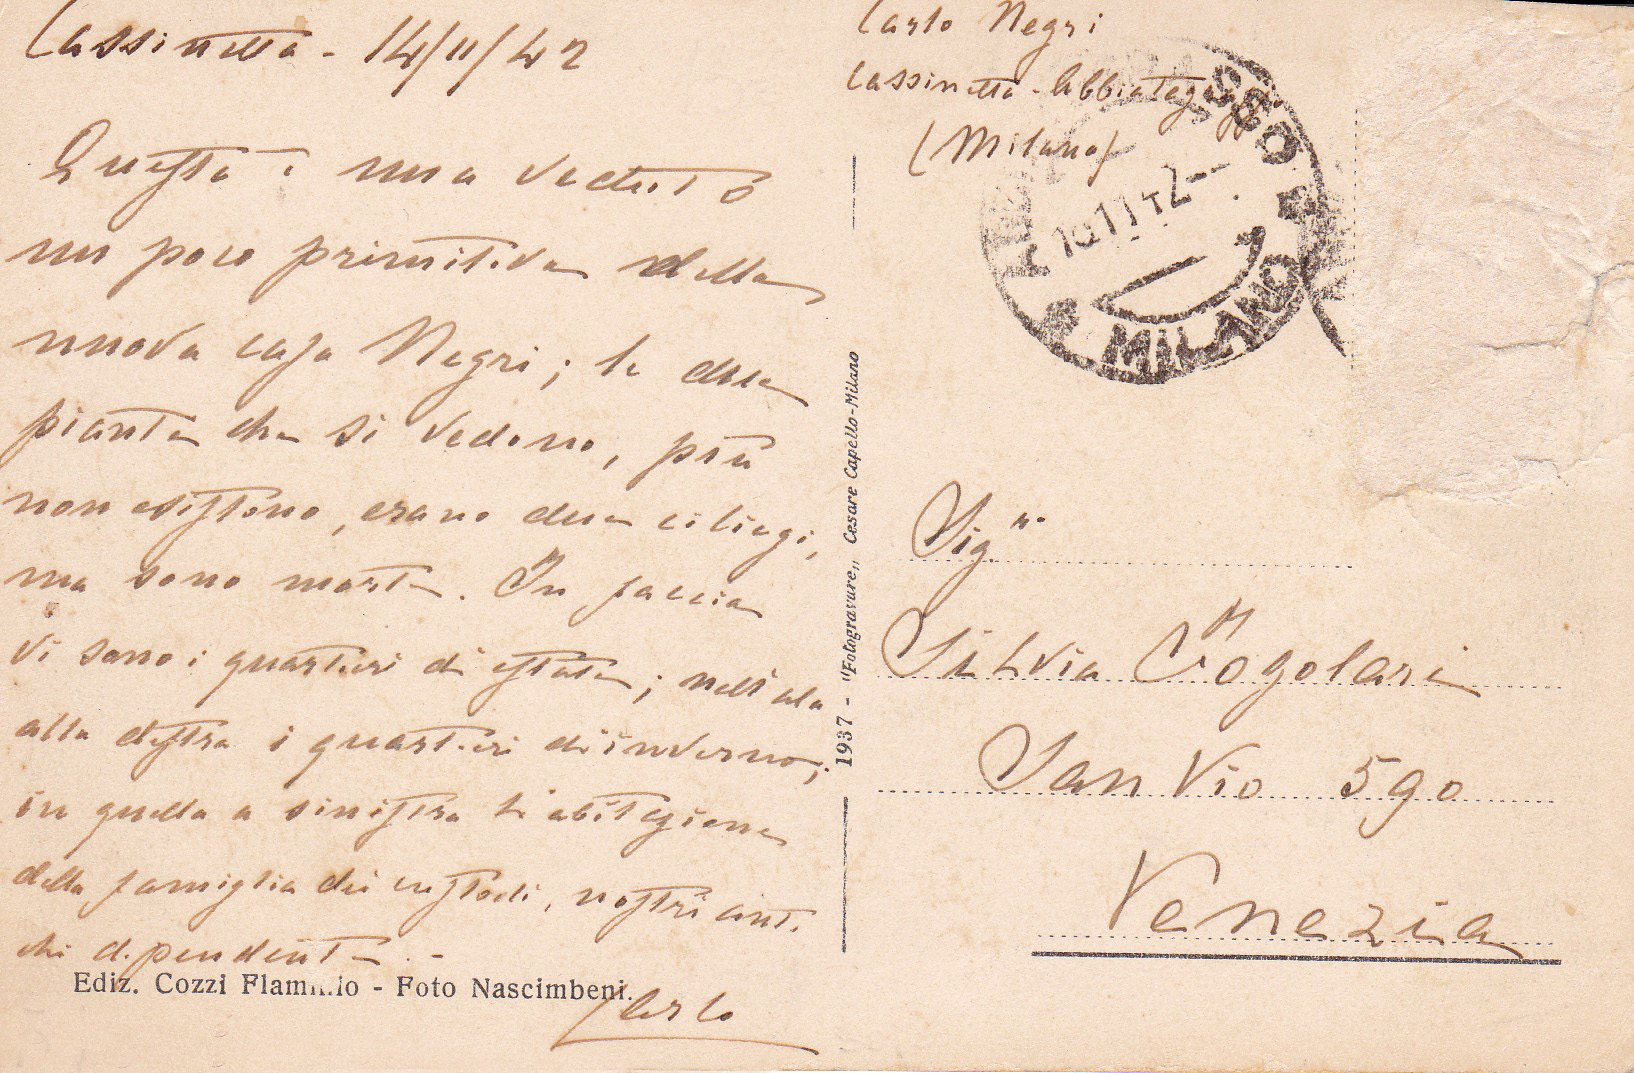 Cassinetta - 14/11/42
Questa è una veduta
un poco primitiva della
nuova casa Negri; le due
piante che si vedono, più
non esistono, erano due ciliegi,
ma sono morte. In faccia
vi sono i quartieri di estate; nell'ala
alla destra i quartieri di inverno;
in quella a sinistra l'abitazione
della famiglia dei custodi, nostri anti-
chi dipendenti. -
Carlo
Ediz. Cozzi Flaminio - Foto Nascimbeni.
1937 - "Fotogravure„ Cesare Capello-Milano
Carlo Negri
Cassinetta - Abbiategrasso
(Milano)
MILANO
Sig.ra
Silvia Cogolari
San Vio 590
Venezia